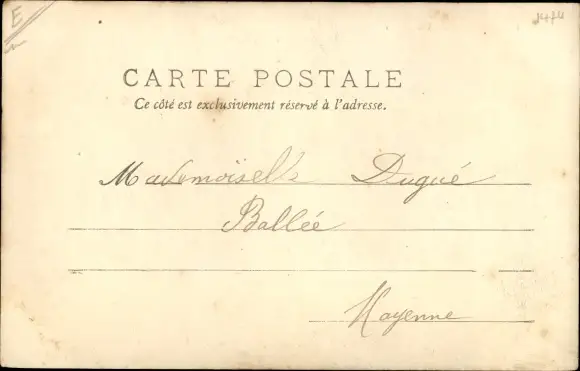 E
CARTE POSTALE
Ce côté est exclusivement réservé à l'adresse.
Mademoiselle Dugué
Ballée
Mayenne